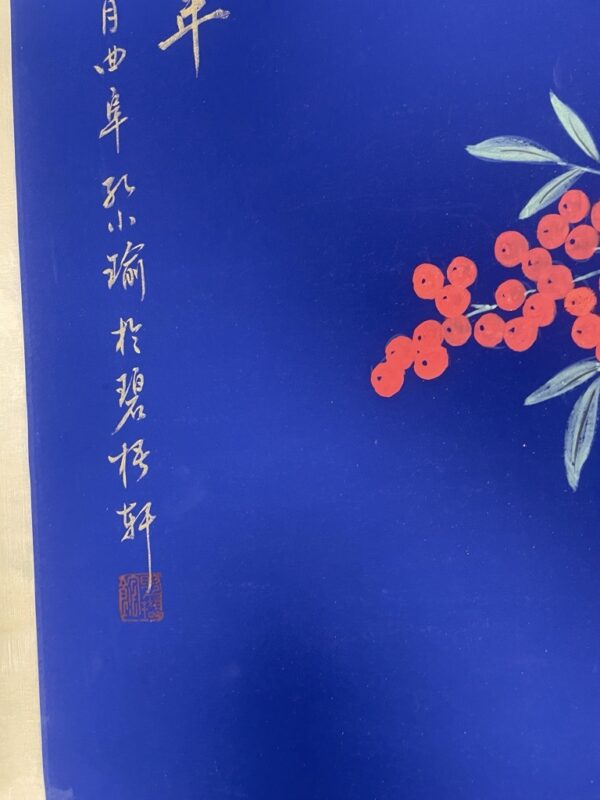 年
月曲阜孔小瑜於碧梧轩